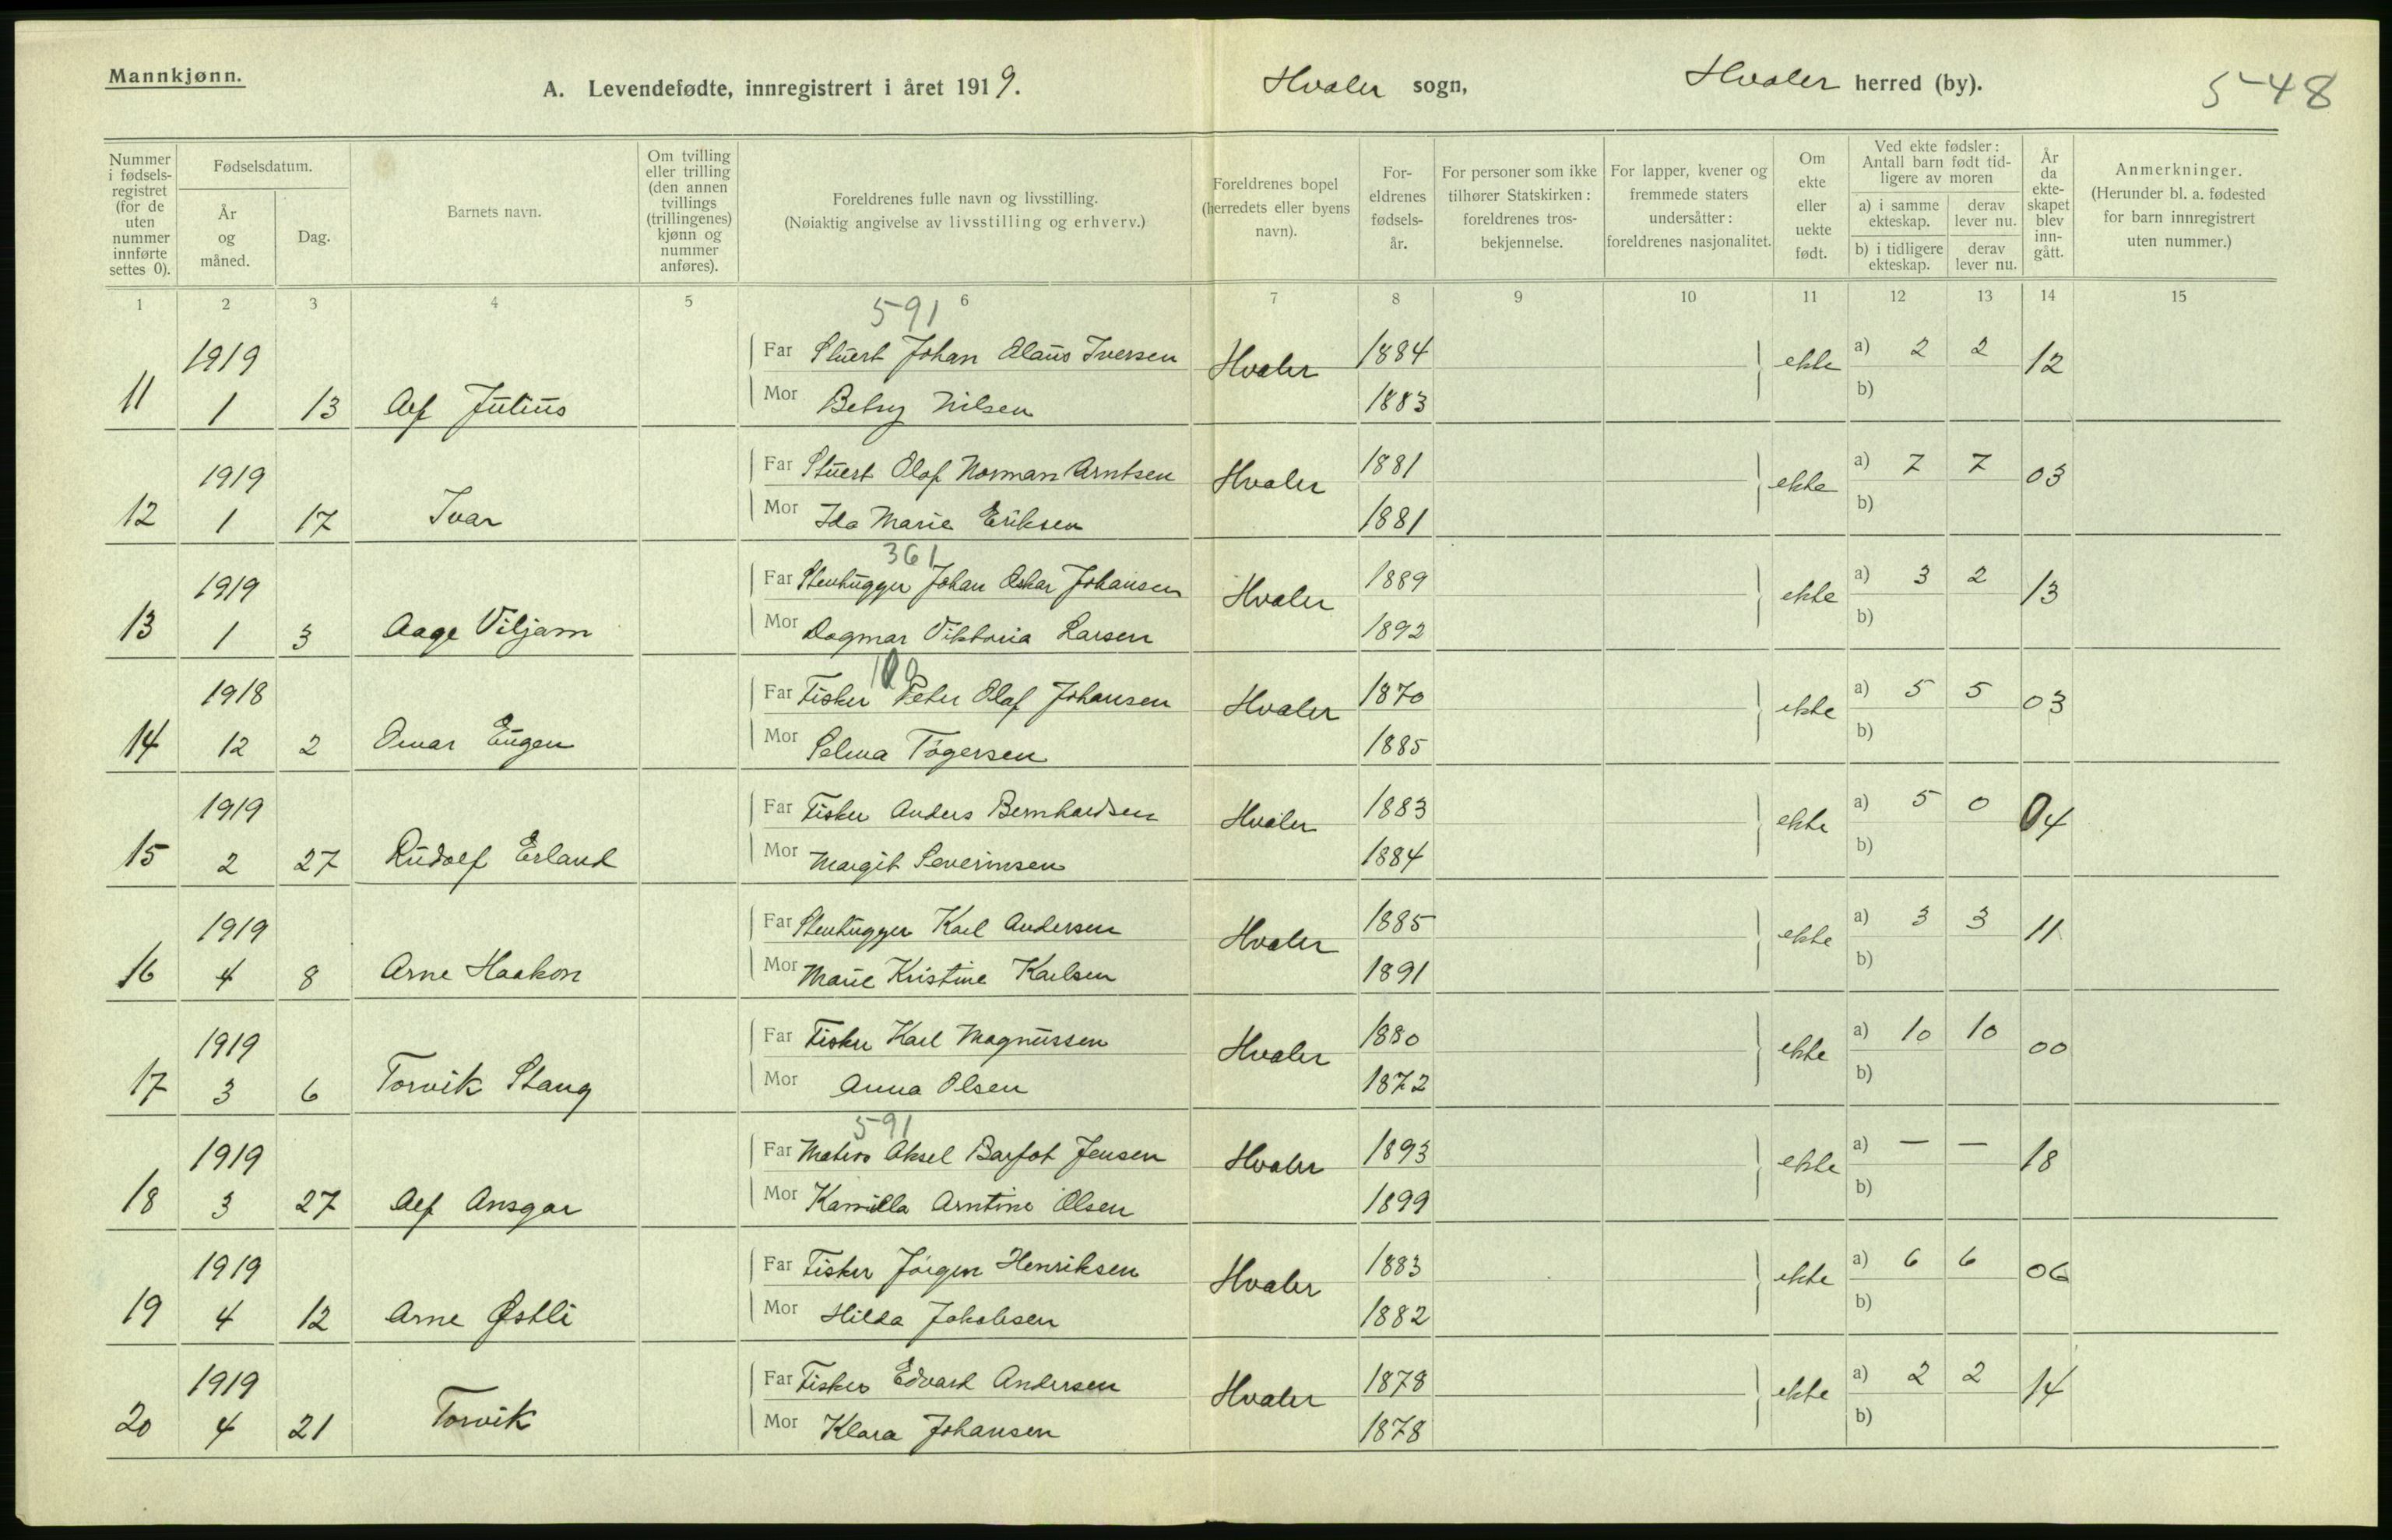 Mannkjønn.
A. Levendefødte, innregistrert i året 1919. Hvaler sogn, Hvaler herred (by). 548
Nummer i fødselsregistret (for de uten nummer innførte settes 0).
Fødselsdatum.
År og måned.
Dag.
Barnets navn.
Om tvilling eller trilling (den annen tvillings (trillingenes) kjønn og nummer anføres).
Foreldrenes fulle navn og livsstilling.
(Nøiaktig angivelse av livsstilling og erhverv.)
Foreldrenes bopel (herredets eller byens navn).
Foreldrenes fødselsår.
For personer som ikke tilhører Statskirken: foreldrenes trosbekjennelse.
For lapper, kvener og fremmede staters undersåtter: foreldrenes nasjonalitet.
Om ekte eller uekte født.
Ved ekte fødsler: Antall barn født tidligere av moren
a) i samme ekteskap. derav lever nu.
b) i tidligere ekteskap. derav lever nu.
År da ekteskapet blev inngått.
Anmerkninger.
(Herunder bl. a. fødested for barn innregistrert uten nummer.)
1 2 3 4 5 6 7 8 9 10 11 12 13 14 15
591
1919 Far Stuert Johan Olaus Iversen Hvaler 1884 ekte a) 2 2 12
11 1 13 Alf Julius Mor Betsy Nilsen 1883 b)
1919 Far Stuert Olaf Norman Arntsen Hvaler 1881 ekte a) 7 7 03
12 1 17 Ivar Mor Ida Marie Eriksen 1881 b)
361
1919 Far Stenhugger Johan Oskar Johansen Hvaler 1889 ekte a) 3 2 13
13 1 3 Aage Viljam Mor Dagmar Viktoria Larsen 1892 b)
100
1918 Far Fisker Peter Olaf Johansen Hvaler 1870 ekte a) 5 5 03
14 12 2 Omar Eugen Mor Selma Togersen 1885 b)
1919 Far Fisker Anders Bernhardsen Hvaler 1883 ekte a) 5 0 04
15 2 27 Rudolf Erland Mor Margit Severinsen 1884 b)
1919 Far Stenhugger Karl Andersen Hvaler 1885 ekte a) 3 3 11
16 4 8 Arne Haakon Mor Marie Kristine Karlsen 1891 b)
1919 Far Fisker Karl Magnussen Hvaler 1880 ekte a) 10 10 00
17 3 6 Torvik Stang Mor Anna Olsen 1872 b)
591
1919 Far Matros Aksel Barfot Jensen Hvaler 1893 ekte a) — — 18
18 3 27 Alf Ansgar Mor Kamilla Arntine Olsen 1899 b)
1919 Far Fisker Jörgen Henriksen Hvaler 1883 ekte a) 6 6 06
19 4 12 Arne Østli Mor Hilda Jakobsen 1882 b)
1919 Far Fisker Edvard Andersen Hvaler 1878 ekte a) 2 2 14
20 4 21 Torvik Mor Klara Johansen 1878 b)